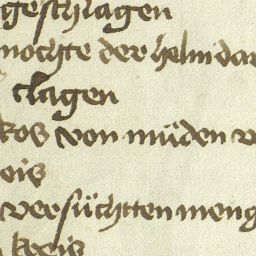 geschlagen
mochte der helm dar
clagen
kos von müden v
ois
versüchtten meng
kreis